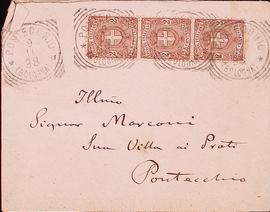 PONTECCHIO
9
98
(BOLOGNA)
2 2 2
Illmo
Signor Marconi
Sua Villa ai Prati
Pontecchio